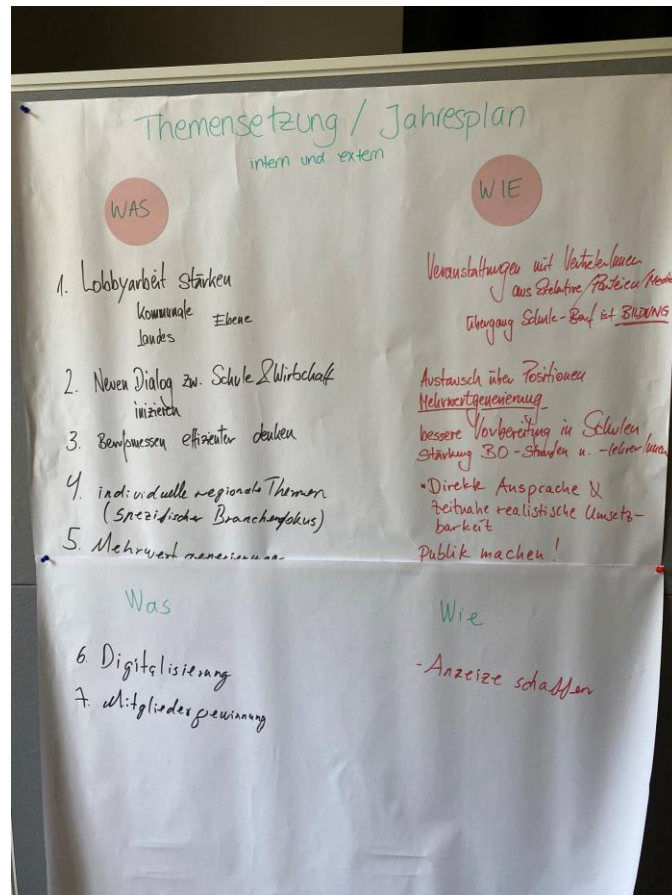 Themensetzung / Jahresplan
intern und extern
WAS
1. Lobbyarbeit stärken
Kommunale
Landes Ebene
2. Neuen Dialog zw. Schule & Wirtschaft
inizieren
3. Berufsmessen effizienter denken
4. individuelle regionale Themen
(Spezifischer Branchenfokus)
5. Mehrwert generierung
WIE
Veranstaltungen mit VertreterInnen
aus /Parteien/
Übergang Schule-Beruf ist BILDUNG
Austausch über Positionen
Mehrwertgenerierung
bessere Vorbereitung in Schulen
Stärkung BO-Stunden u. -lehrer/innen
Direkte Ansprache &
zeitnahe realistische Umsetz-
barkeit
Publik machen!
Was
6. Digitalisierung
7. Mitgliedergewinnung
Wie
- Anreize schaffen